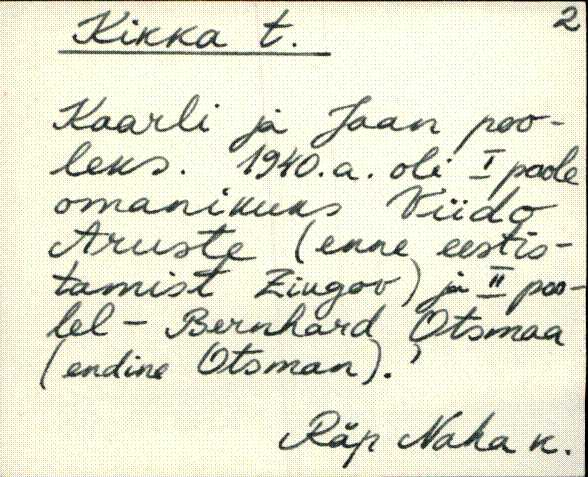 2
Kikka t.
Kaarli ja Jaan poo-
leks. 1940.a. oli I poole
omanikuks Viido
Aruste (enne eestis-
tamist Zingov) ja II poo-
lel - Bernhard Otsmaa
(endine Otsman).
Räp Naha k.